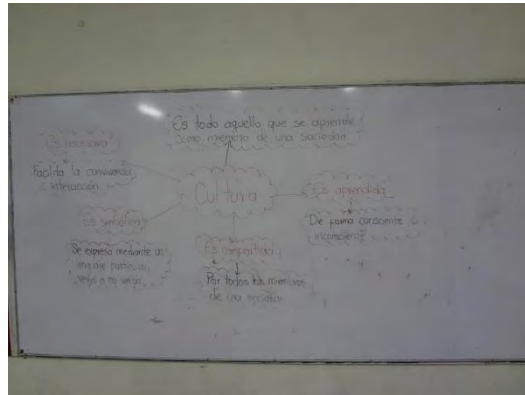 Es todo aquello que se aprende
como miembro de una sociedad.
Es necesaria
Facilita la convivencia
e interacción
Cultura
Es aprendida
De forma consciente e
inconsciente
Es simbólica
Se expresa mediante un
lenguaje particular,
verbal o no verbal
Es compartida
Por todos los miembros
de una sociedad